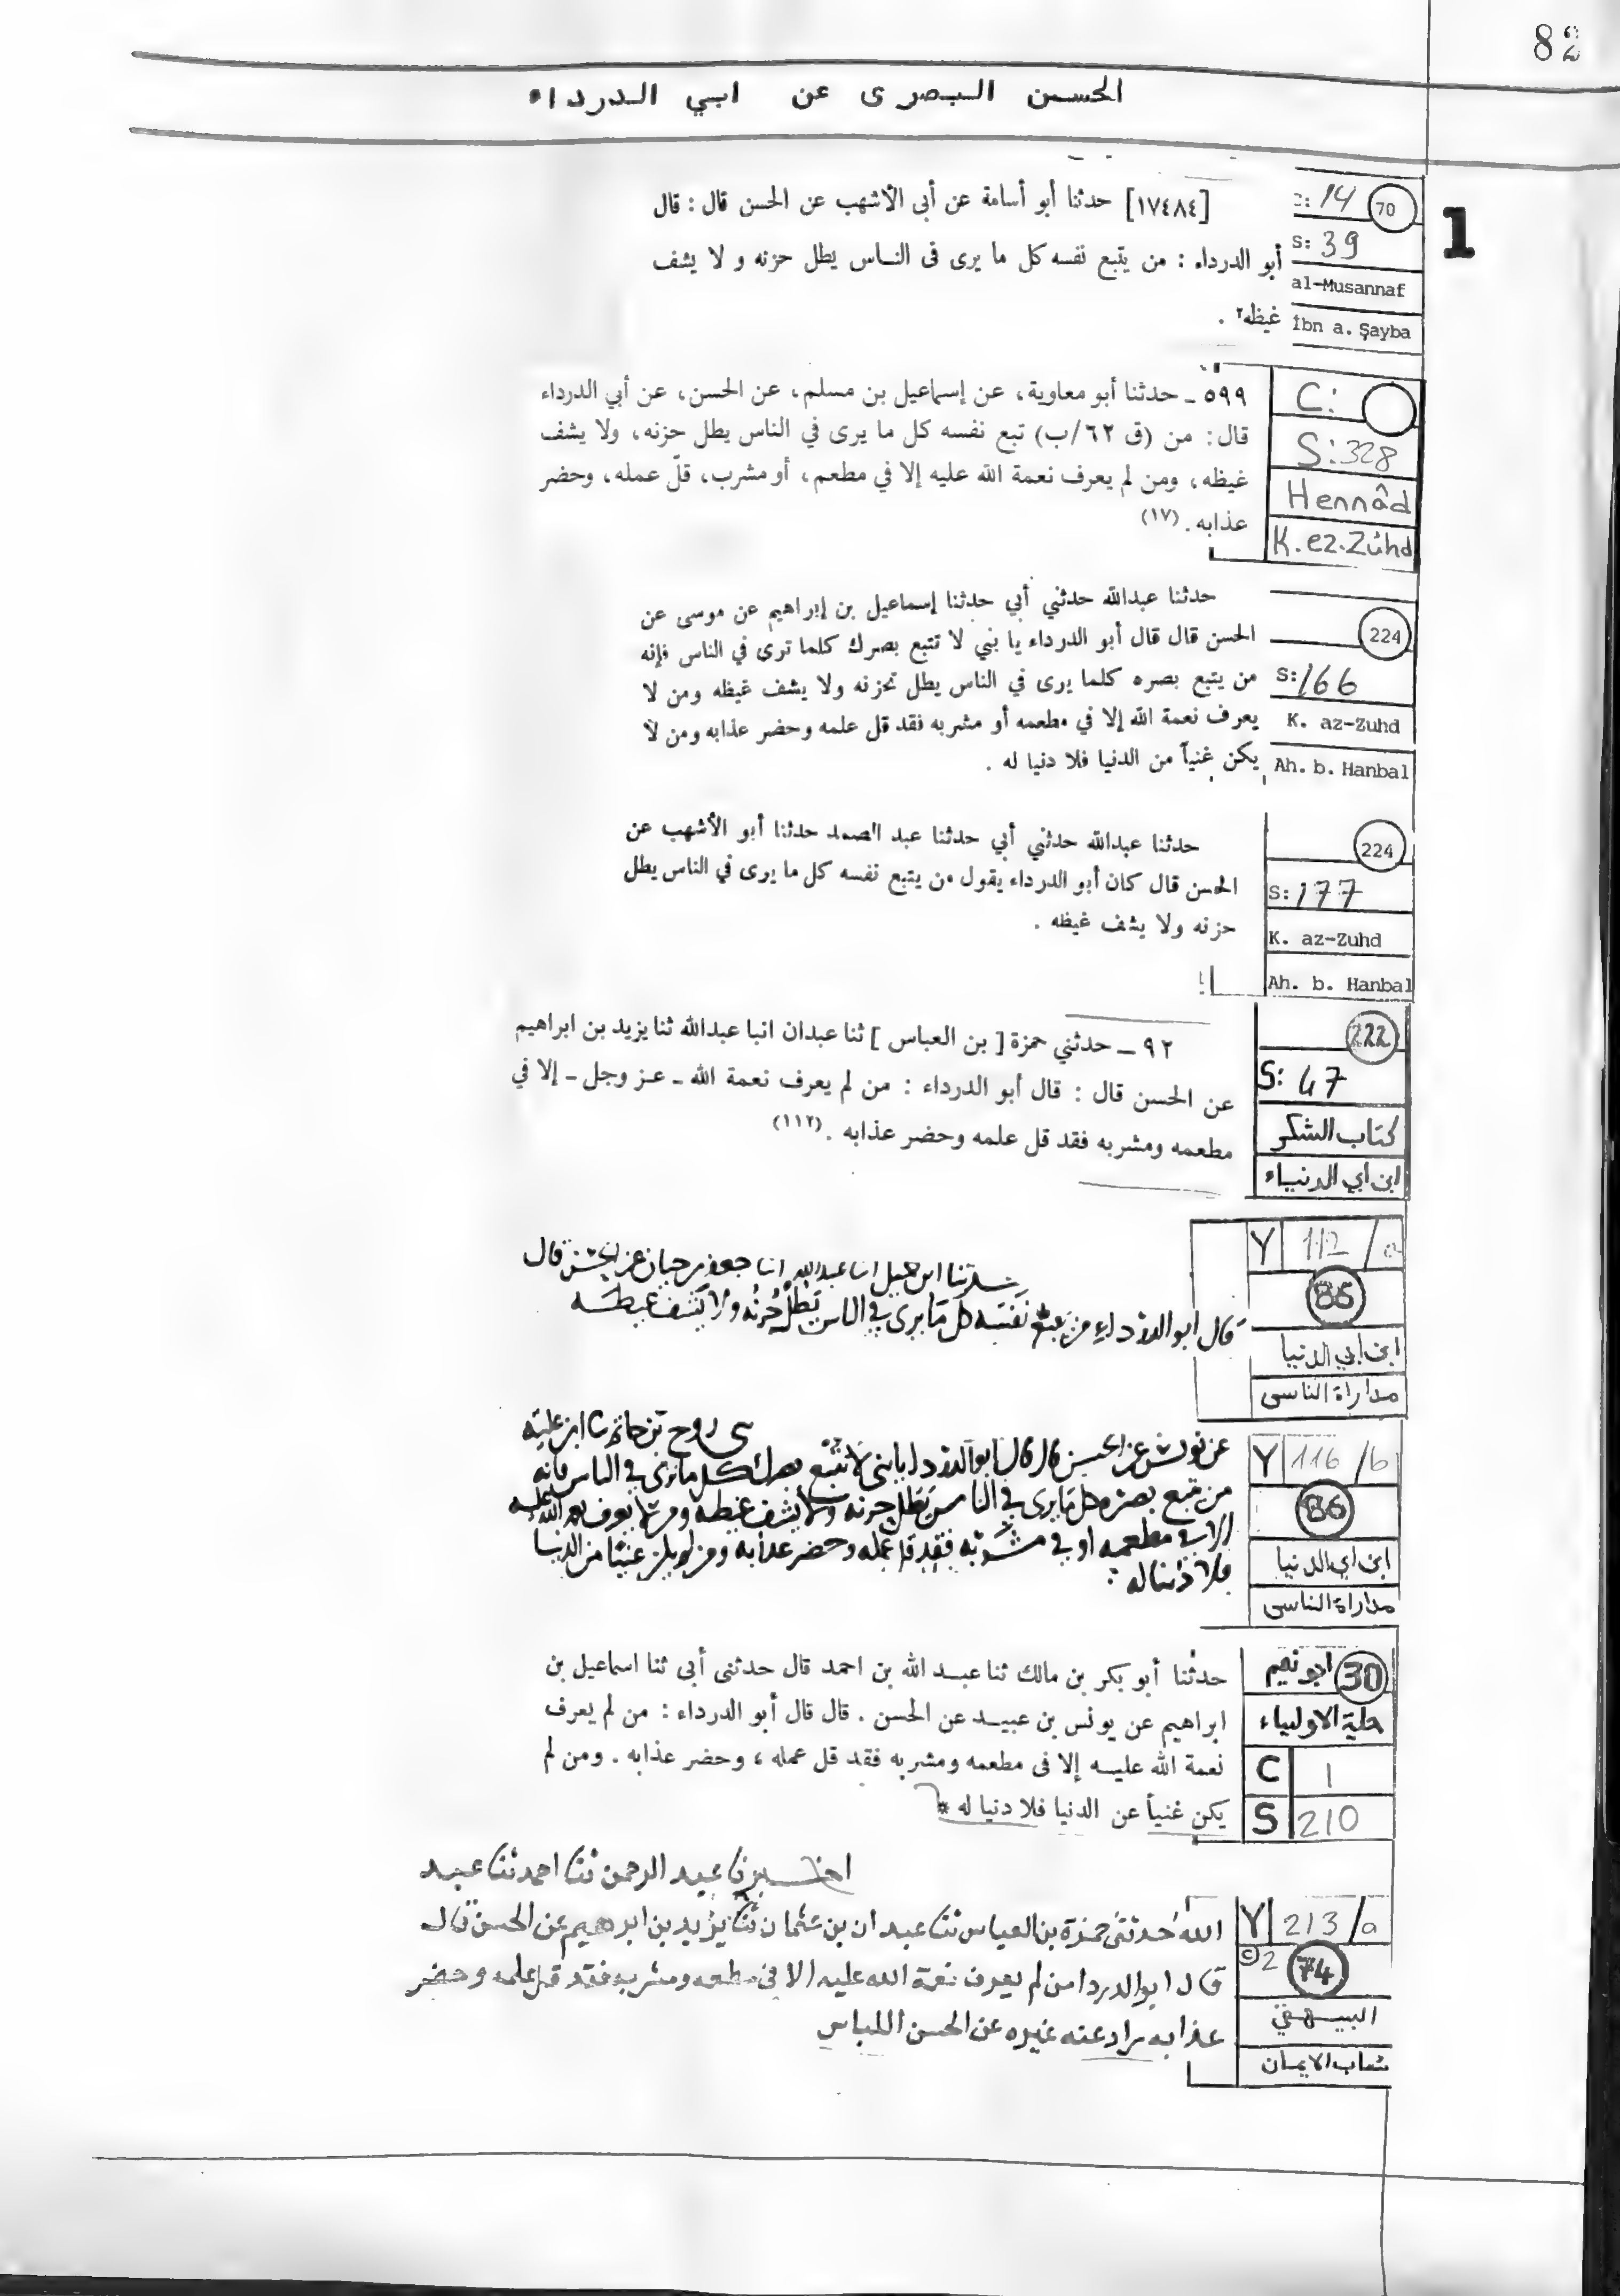 82
الحسن البصرى عن ابي الدرداء
1
C: 14 70
S: 39
al-Musannaf
İbn a. Şayba
[١٧٤٨٤] حدثنا أبو أسامة عن أبى الأشهب عن الحسن قال : قال
أبو الدرداء : من يتبع نفسه كل ما يرى فى الناس يطل حزنه و لا يشف
غيظه٢ .
C:
S: 328
Hennâd
K. ez.Zühd
٥٩٩ ـ حدثنا أبو معاوية، عن إسماعيل بن مسلم، عن الحسن، عن أبي الدرداء
قال: من (ق ٦٢/ب) تبع نفسه كل ما يرى في الناس يطل حزنه، ولا يشف
غيظه، ومن لم يعرف نعمة الله عليه إلا في مطعم، أو مشرب، قلّ عمله، وحضر
عذابه. (١٧)
224
S: 166
K. az-Zuhd
Ah. b. Hanbal
حدثنا عبدالله حدثني أبي حدثنا إسماعيل بن إبراهيم عن موسى عن
الحسن قال قال أبو الدرداء يا بني لا تتبع بصرك كلما ترى في الناس فإنه
من يتبع بصره كلما يرى في الناس يطل تحزنه ولا يشف غيظه ومن لا
يعرف نعمة الله إلا في مطعمه أو مشربه فقد قل علمه وحضر عذابه ومن لا
يكن غنياً من الدنيا فلا دنيا له .
224
S: 177
K. az-Zuhd
Ah. b. Hanbal
حدثنا عبدالله حدثني أبي حدثنا عبد الصمد حدثنا أبو الأشهب عن
الحسن قال كان أبو الدرداء يقول من يتبع نفسه كل ما يرى في الناس يطل
حزنه ولا يشف غيظه .
222
S: 47
كتاب الشكر
ابن ابي الدنياء
٩٢ ــ حدثني حمزة [ بن العباس ] ثنا عبدان انبا عبدالله ثنا يزيد بن ابراهيم
عن الحسن قال : قال أبو الدرداء : من لم يعرف نعمة الله ـ عز وجل ـ إلا في
مطعمه ومشربه فقد قل علمه وحضر عذابه . (١١٢)
Y 112/a
86
ابن ابي الدنيا
مداراة الناس
انا عبدالله انا جعفر بن حيان عن الحسن قال
قال ابو الدرداء من يتبع نفسه كل ما يرى في الناس يطل حزنه ولا يشف غيظه
Y 116/b
86
ابن ابي الدنيا
مداراة الناس
عن يونس عن الحسن قال قال ابو الدرداء يا بنى لا تتبع بصرك كل ما ترى في الناس فانه
من يتبع بصره كل ما يرى في الناس يطل حزنه ولا يشف غيظه ومن لا يعرف نعمه الله عليه
الا في مطعمه او في مشربه فقد قل عمله وحضر عذابه ومن لم يكن غنيا من الدنيا
فلا دنيا له
30 ابو نعيم
حلية الاولياء
C 1
S 210
حدثنا أبو بكر بن مالك ثنا عبد الله بن احمد قال حدثنى أبى ثنا اسماعيل بن
ابراهيم عن يونس بن عبيد عن الحسن . قال قال أبو الدرداء : من لم يعرف
نعمة الله عليه إلا فى مطعمه ومشربه فقد قل عمله ، وحضر عذابه . ومن لم
يكن غنياً عن الدنيا فلا دنيا له *
Y 213/a
C 2 74
البيهقي
شعاب الايمان
اخبرنا عبد الرحمن ثنا احمد ثنا عبد
الله حدثنى حمزة بن العباس ثنا عبد ان بن عثمان ثنا يزيد بن ابرهيم عن الحسن قال
قال ابو الدردا من لم يعرف نعمة الله عليه الا فى مطعمه ومشربه فقد قل علمه وحضر
عذابه زاد عنه غيره عن الحسن اللباس